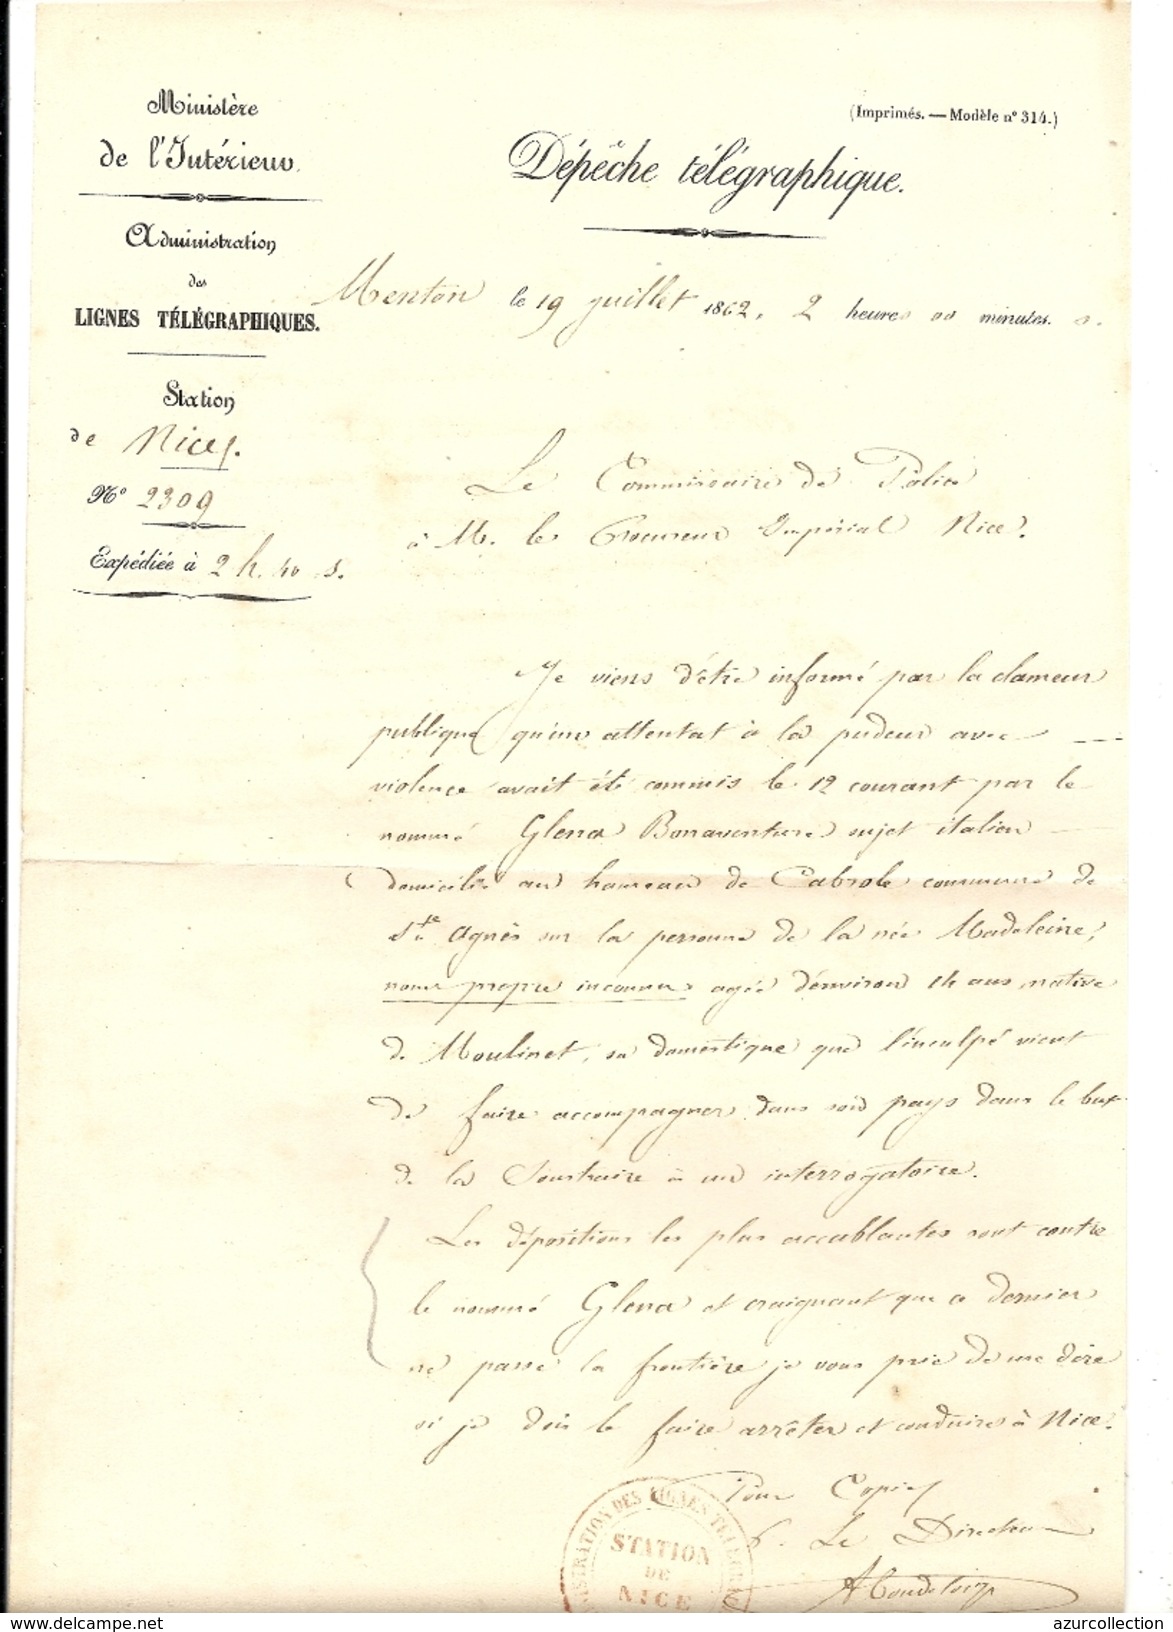 Ministère
de l'Intérieur.
Administration
des
LIGNES TÉLÉGRAPHIQUES.
Station
de Nice.
N° 2309
Expédiée à 2 h. 40 s.
(Imprimés. — Modèle n° 314.)
Dépêche télégraphique.
Menton le 19 juillet 1862, 2 heures 00 minutes s.
Le Commissaire de Police
à M. le Procureur Impérial Nice.
Je viens d'être informé par la clameur
publique qu'un attentat à la pudeur avec
violence avait été commis le 12 courant par le
nommé Glena Bonaventure sujet italien
domicilié au hameau de Cabrole commune de
Ste Agnès sur la personne de la née Madeleine,
nom propre inconnu agée d'environ 14 ans native
de Moulinet, sa domestique que l'inculpé vient
de faire accompagner dans son pays dans le but
de la soustraire à un interrogatoire.
Les dépositions les plus accablantes sont contre
le nommé Glena et craignant que ce dernier
ne passe la frontière je vous prie de me dire
si je dois le faire arrêter et conduire à Nice.
Pour Copie
P. Le Directeur
STATION
DE
NICE
azurcollection